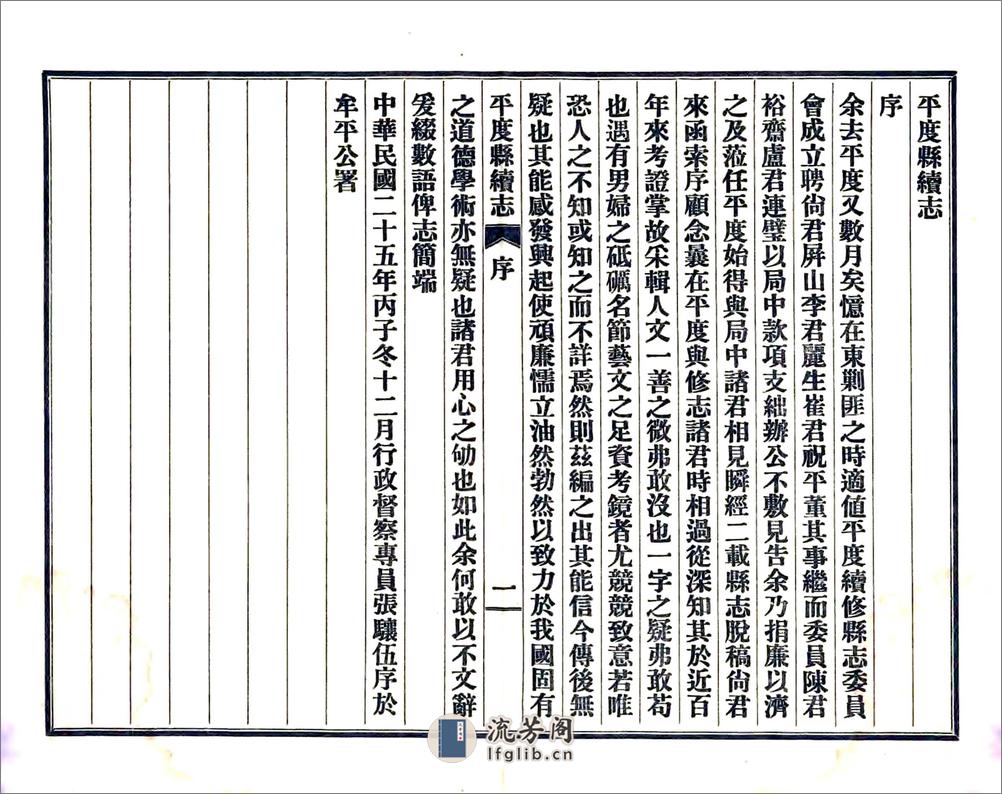 平度縣續志
序
余去平度又數月矣憶在東剿匪之時適値平度續修縣志委員
會成立聘尙君屏山李君麗生崔君祝平董其事繼而委員陳君
裕齋盧君連璧以局中款項支絀辦公不敷見告余乃捐廉以濟
之及蒞任平度始得與局中諸君相見瞬經二載縣志脫稿尙君
來函索序顧念曩在平度與修志諸君時相過從深知其於近百
年來考證掌故采輯人文一善之微弗敢沒也一字之疑弗敢苟
也遇有男婦之砥礪名節藝文之足資考鏡者尤競競致意若唯
恐人之不知或知之而不詳焉然則茲編之出其能信今傳後無
疑也其能感發興起使頑廉懦立油然勃然以致力於我國固有
平度縣續志 序 二
之道德學術亦無疑也諸君用心之劬也如此余何敢以不文辭
爰綴數語俾志簡端
中華民國二十五年丙子冬十二月行政督察專員張驤伍序於
牟平公署
流芳阁
lfglib.cn